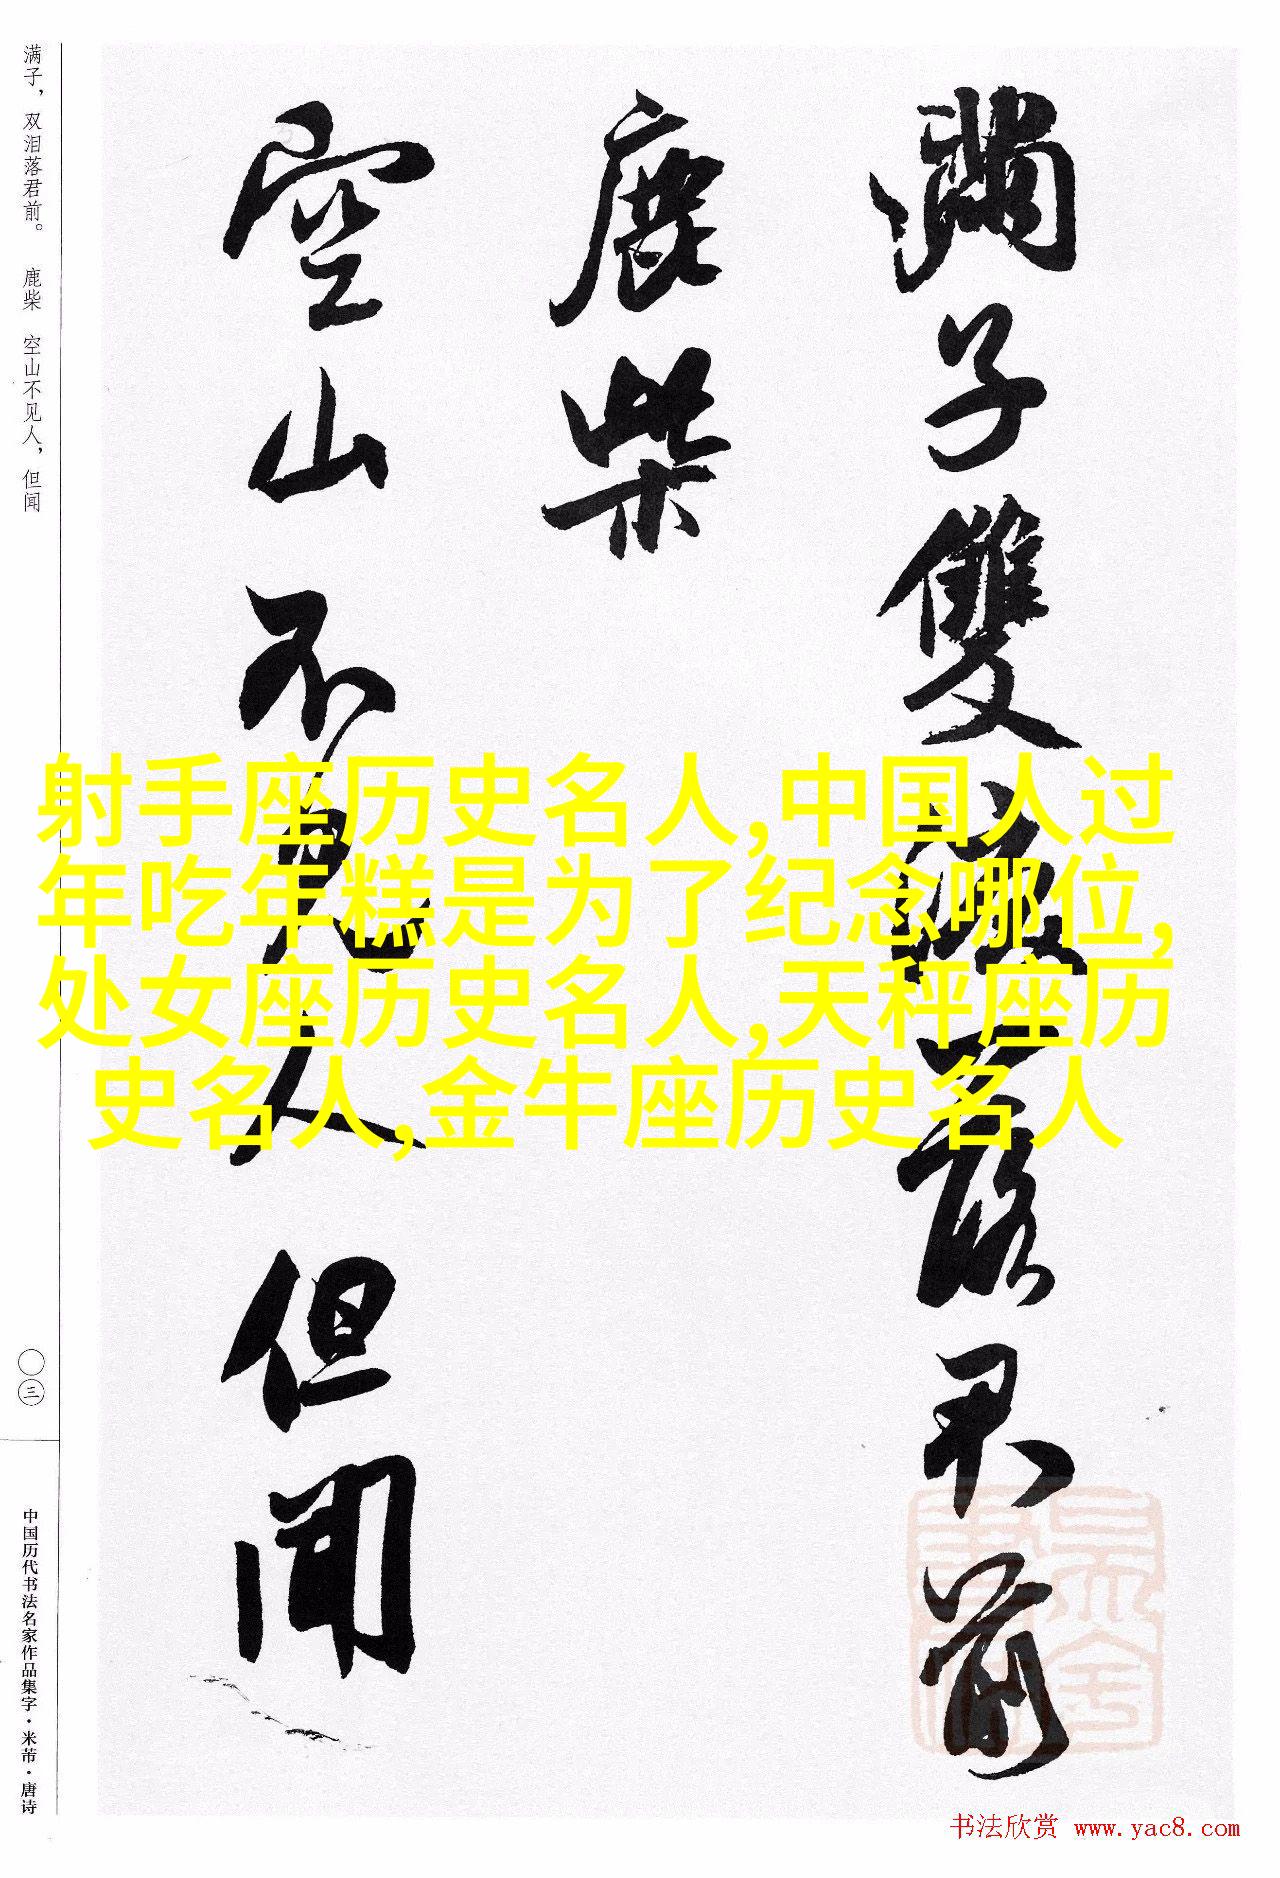 满子，双泪落君前。 鹿柴 空山不见人，但闻
〇三
中国历代书法名家作品集字·米芾·唐诗
满子雙淚落君前
鹿柴
空山不見人但聞
射手座历史名人,中国人过
年吃年糕是为了纪念哪位,
处女座历史名人,天秤座历
史名人,金牛座历史名人
书法欣赏 www.yac8.com